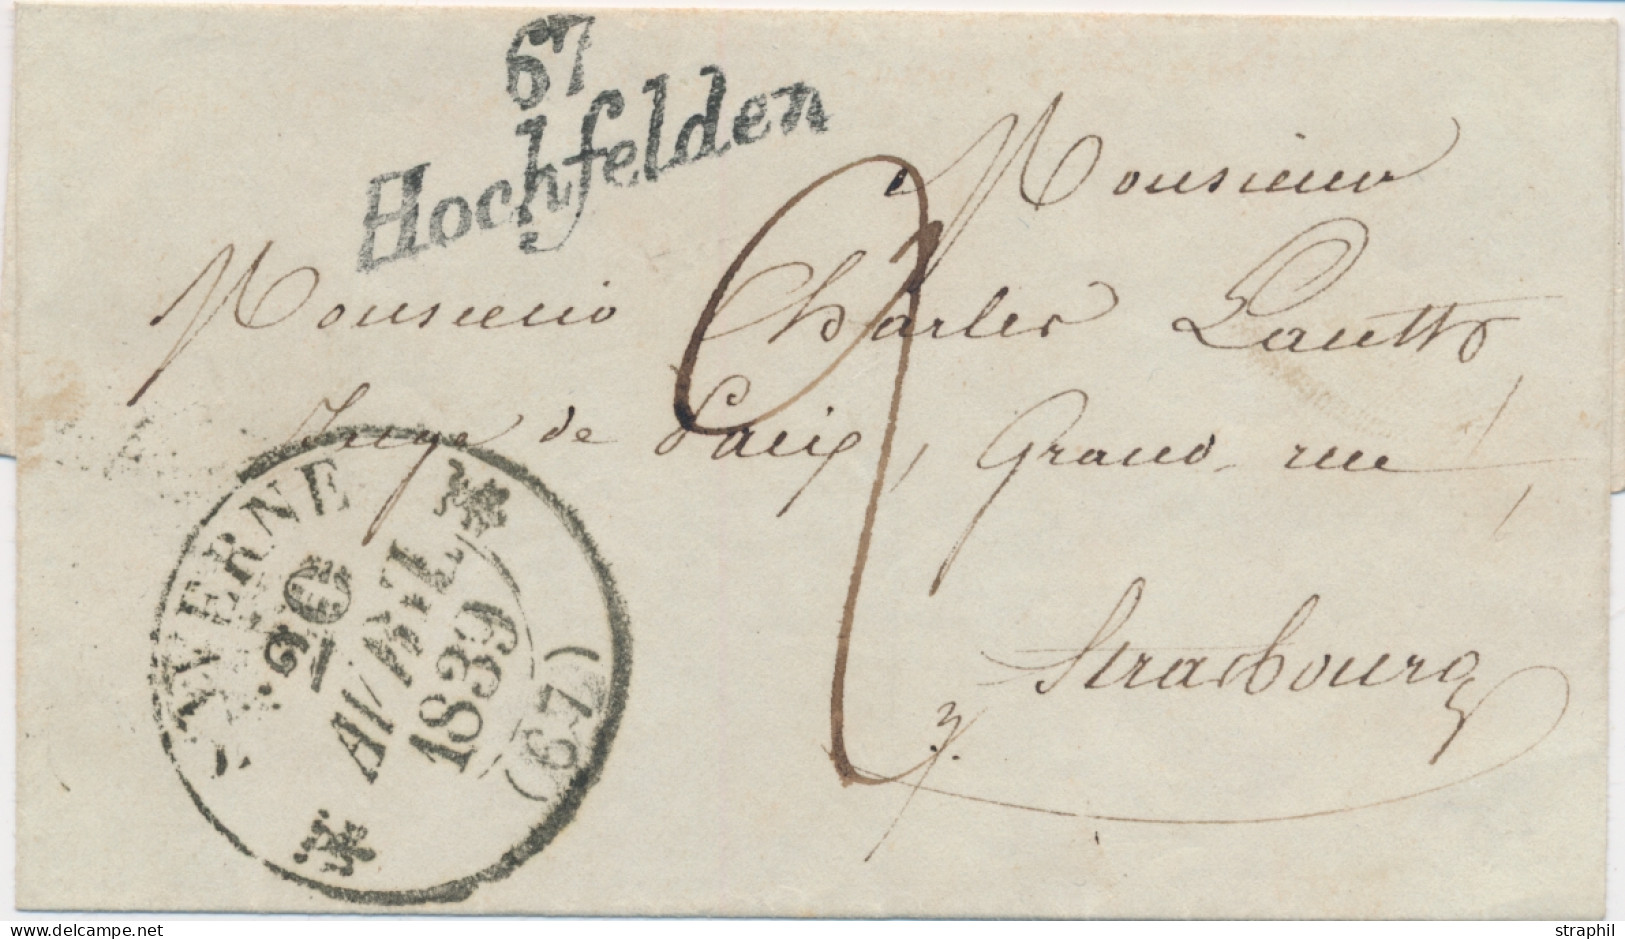 67
Hochfelden
Monsieur
Monsieur Charles Lauth
Juge de Paix, Grand-rue,
Strasbourg
2
SAVERNE
26
AVRIL
1839
(67)
straphil